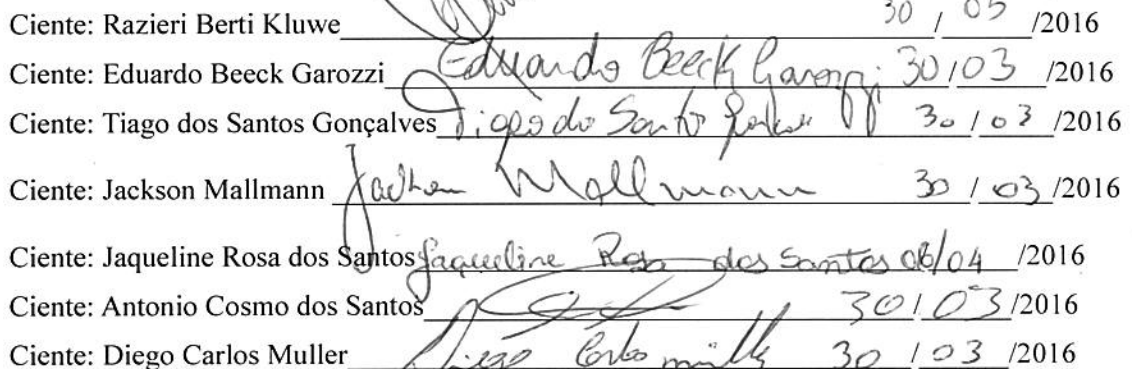 Ciente: Razieri Berti Kluwe 30 / 05 /2016
Ciente: Eduardo Beeck Garozzi Eduardo Beeck Garozzi 30/03 /2016
Ciente: Tiago dos Santos Gonçalves Tiago do Santos 30 / 03 /2016
Ciente: Jackson Mallmann Jackson Mallmann 30 / 03 /2016
Ciente: Jaqueline Rosa dos Santos Jaqueline Rosa dos Santos 06/04 /2016
Ciente: Antonio Cosmo dos Santos 30 / 03 /2016
Ciente: Diego Carlos Muller Diego Carlos Müller 30 / 03 /2016